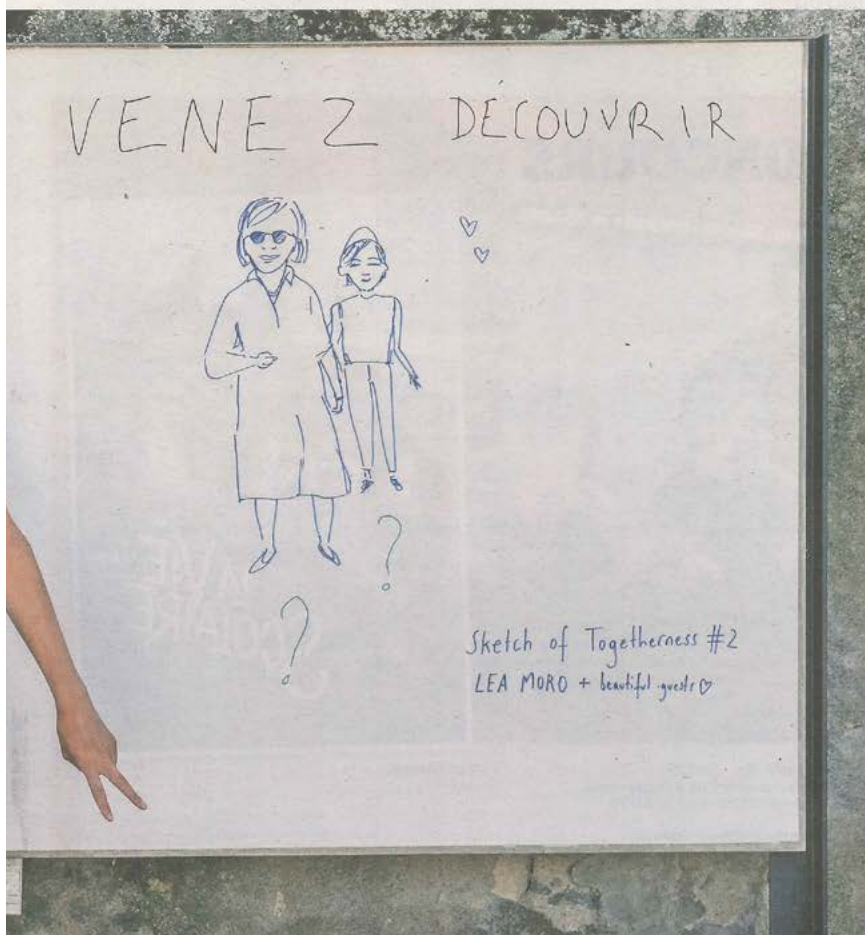 VENEZ DÉCOUVRIR
?
?
Sketch of Togetherness #2
LEA MORO + beautiful guests ♡